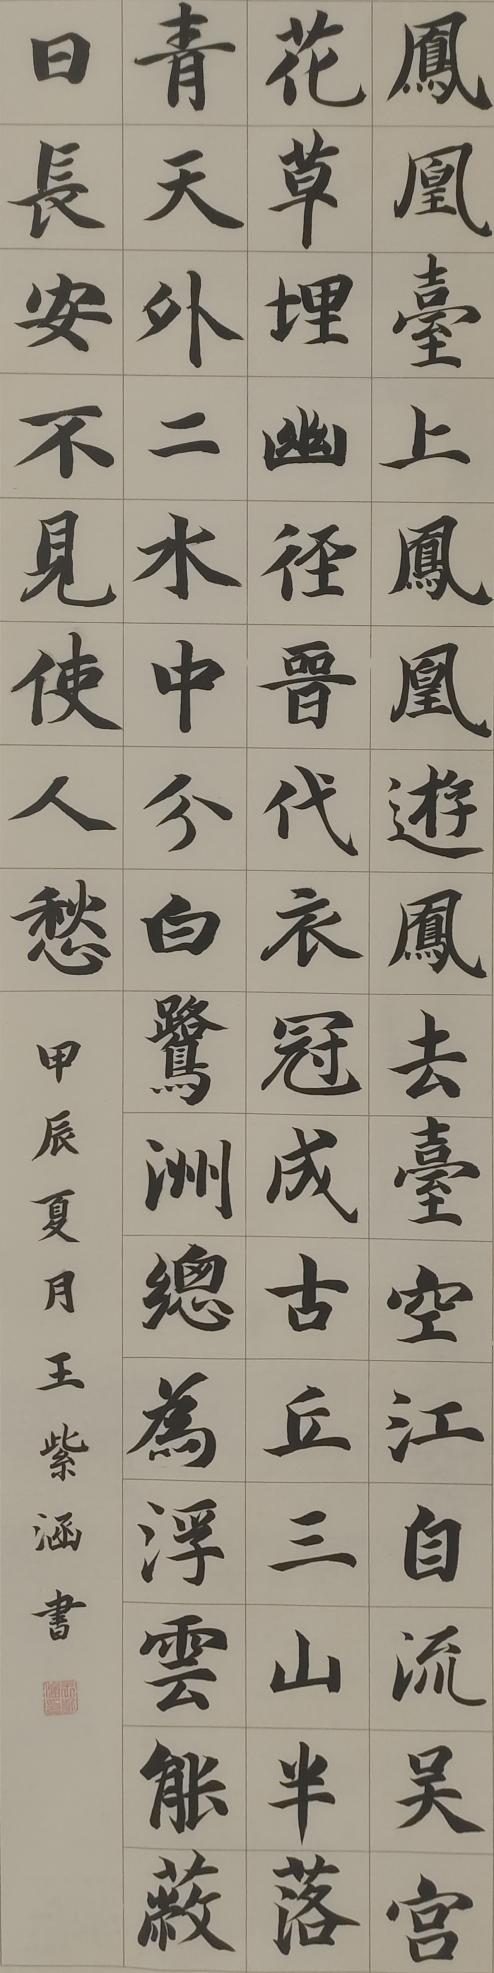 鳳凰臺上鳳凰遊鳳去臺空江自流吴宫
花草埋幽径晉代衣冠成古丘三山半落
青天外二水中分白鷺洲總為浮雲能蔽
日長安不見使人愁
甲辰夏月王紫涵書